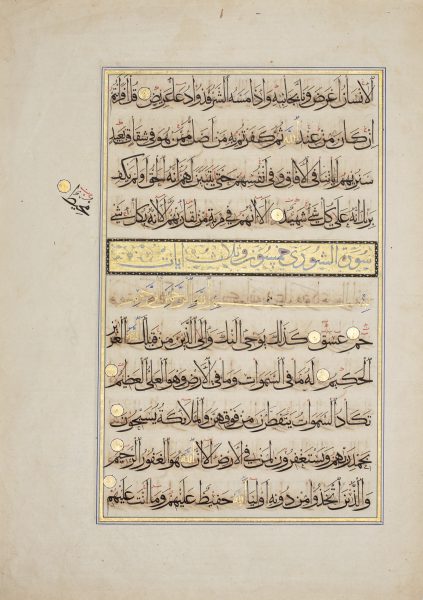 الانسان اعرض ونا بجانبه واذا مسه الشر فذو دعا عريض قل ارايتم
ان كان من عند الله ثم كفرتم به من اضل ممن هو في شقاق بعيد
سنريهم اياتنا في الافاق وفي انفسهم حتى يتبين لهم انه الحق اولم يكف
بربك انه على كل شي شهيد الا انهم في مرية من لقا ربهم الا انه بكل شي
محيط
سورة الشورى خمسون وثلاث ايات
بسم الله الرحمن الرحيم
حم عسق كذلك يوحي اليك والى الذين من قبلك الله العزيز
الحكيم له ما في السموات وما في الارض وهو العلي العظيم
تكاد السموات يتفطرن من فوقهن والملائكة يسبحون
بحمد ربهم ويستغفرون لمن في الارض الا ان الله هو الغفور الرحيم
والذين اتخذوا من دونه اوليا الله حفيظ عليهم وما انت عليهم